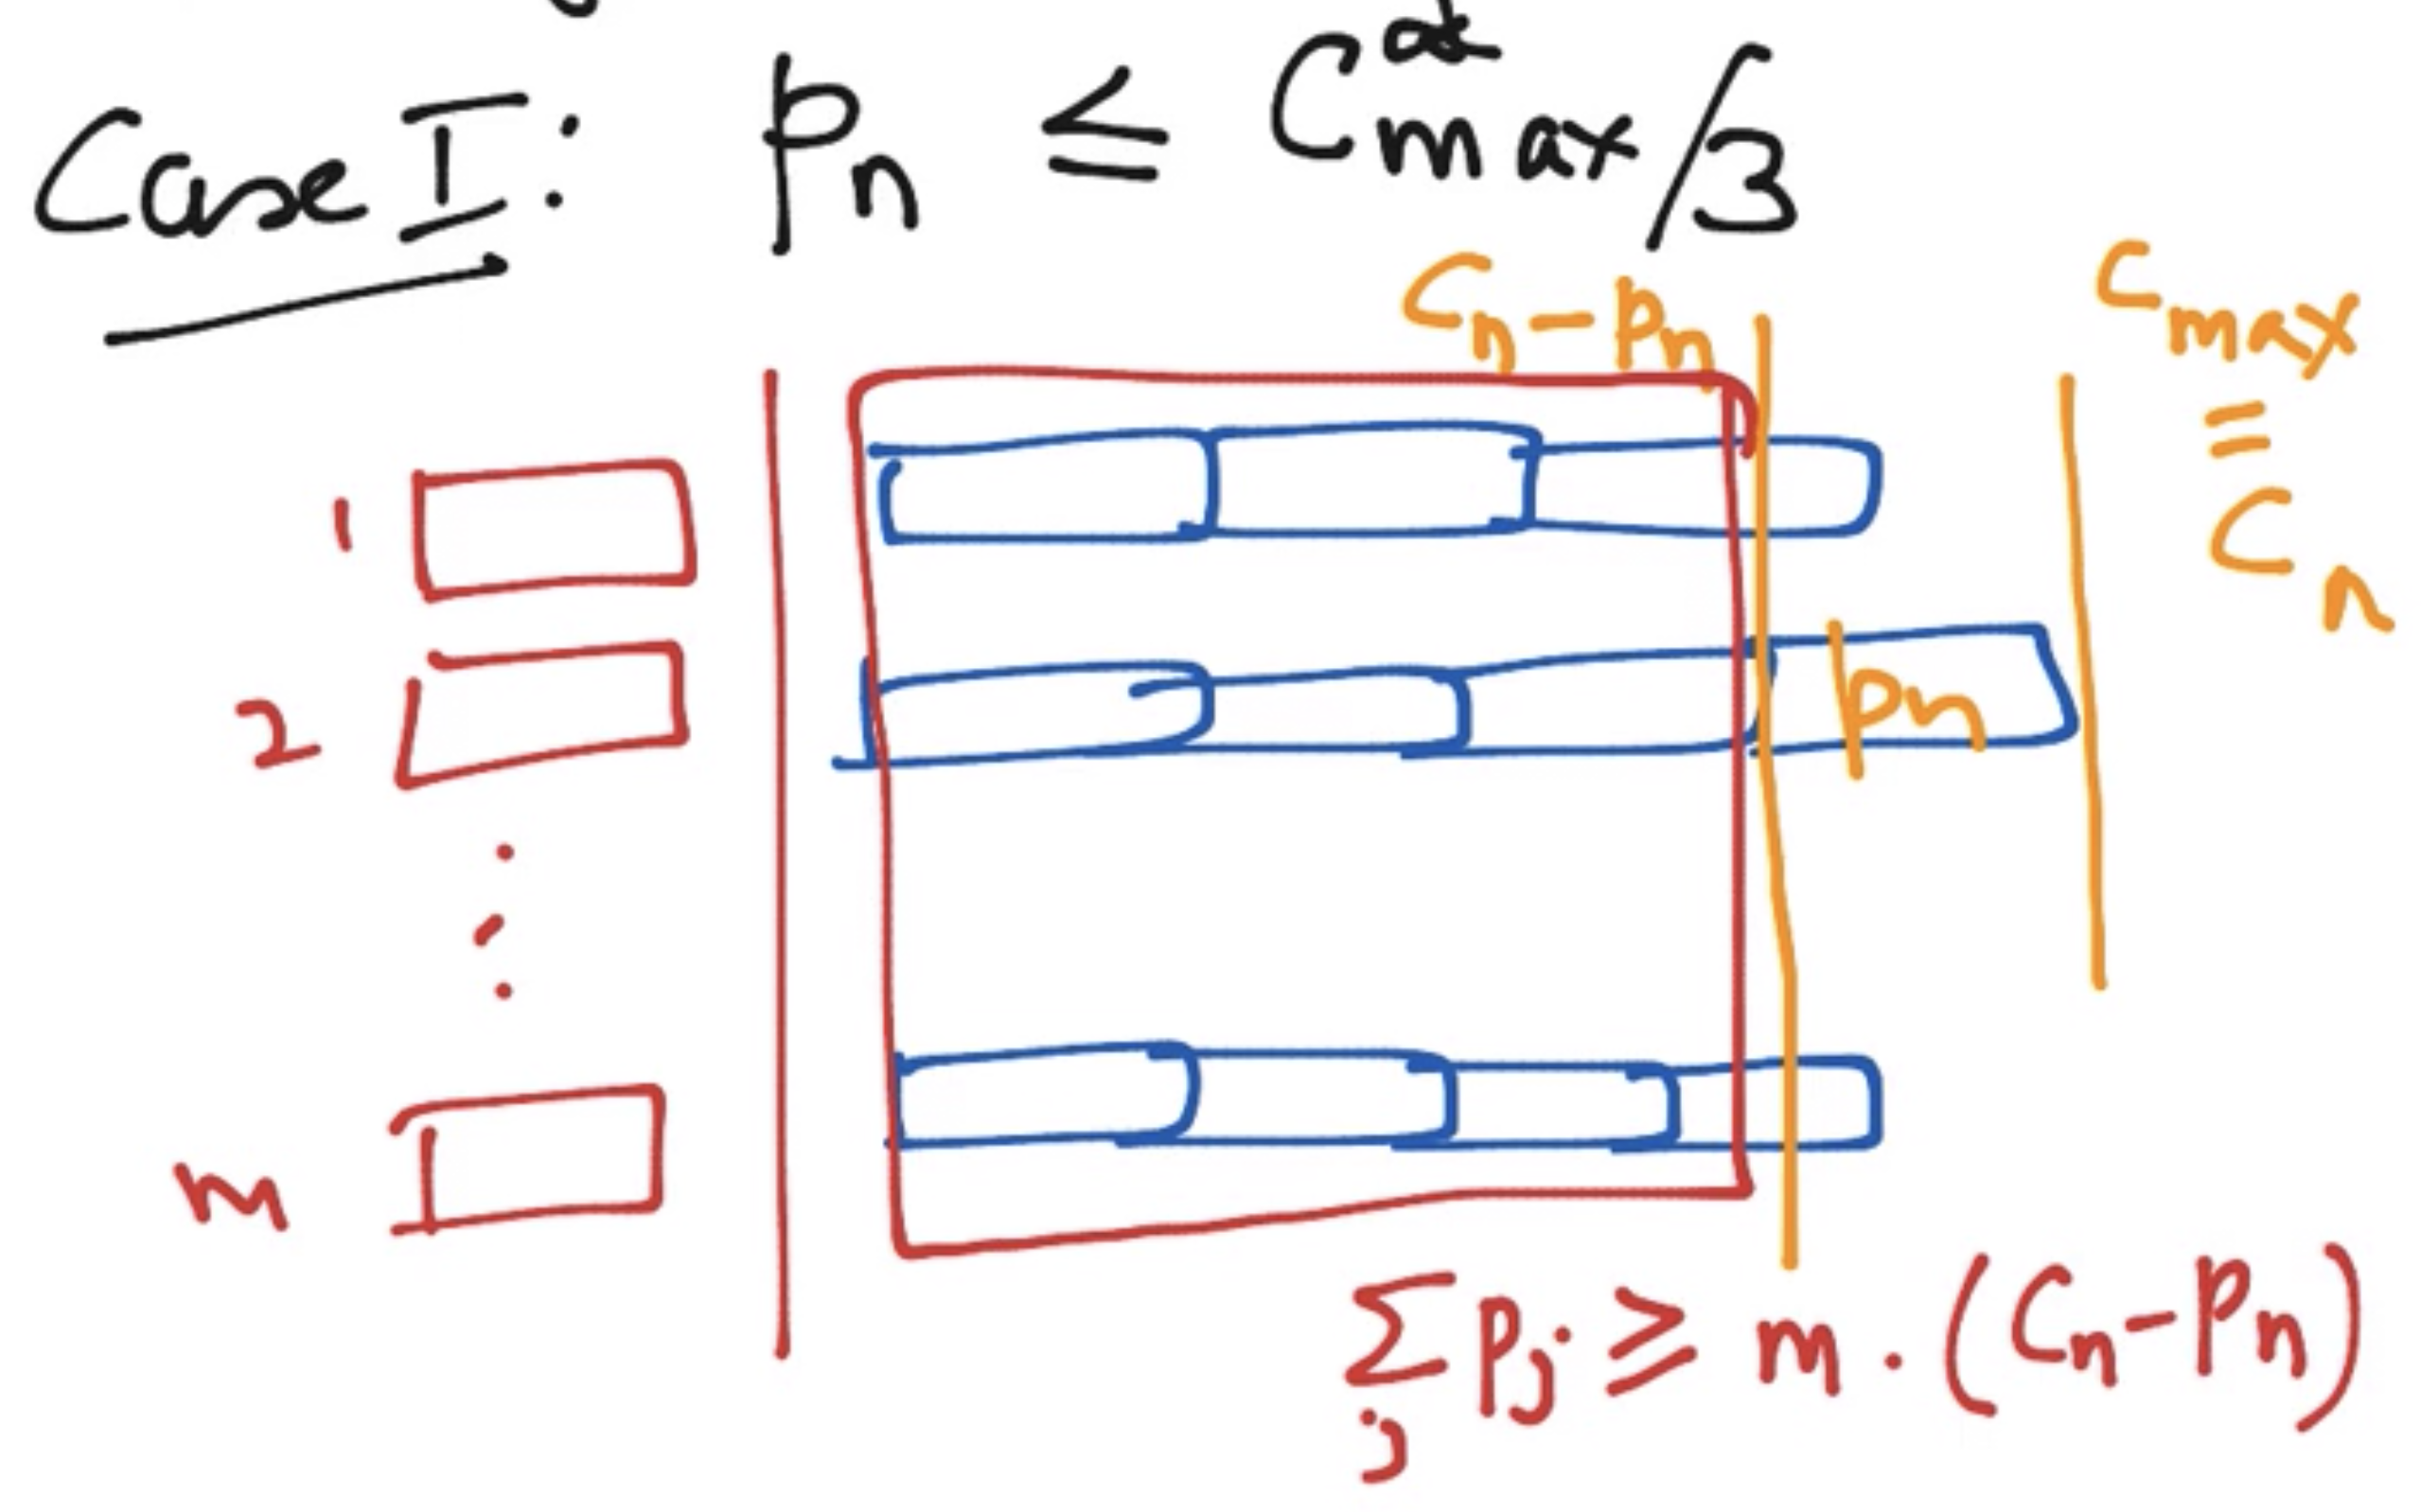 Case I: pₙ ≤ C*max/3
Cₙ-pₙ
Cmax
=
Cₙ
1
2
pₙ
m
∑ⱼ pⱼ ≥ m . (Cₙ-pₙ)